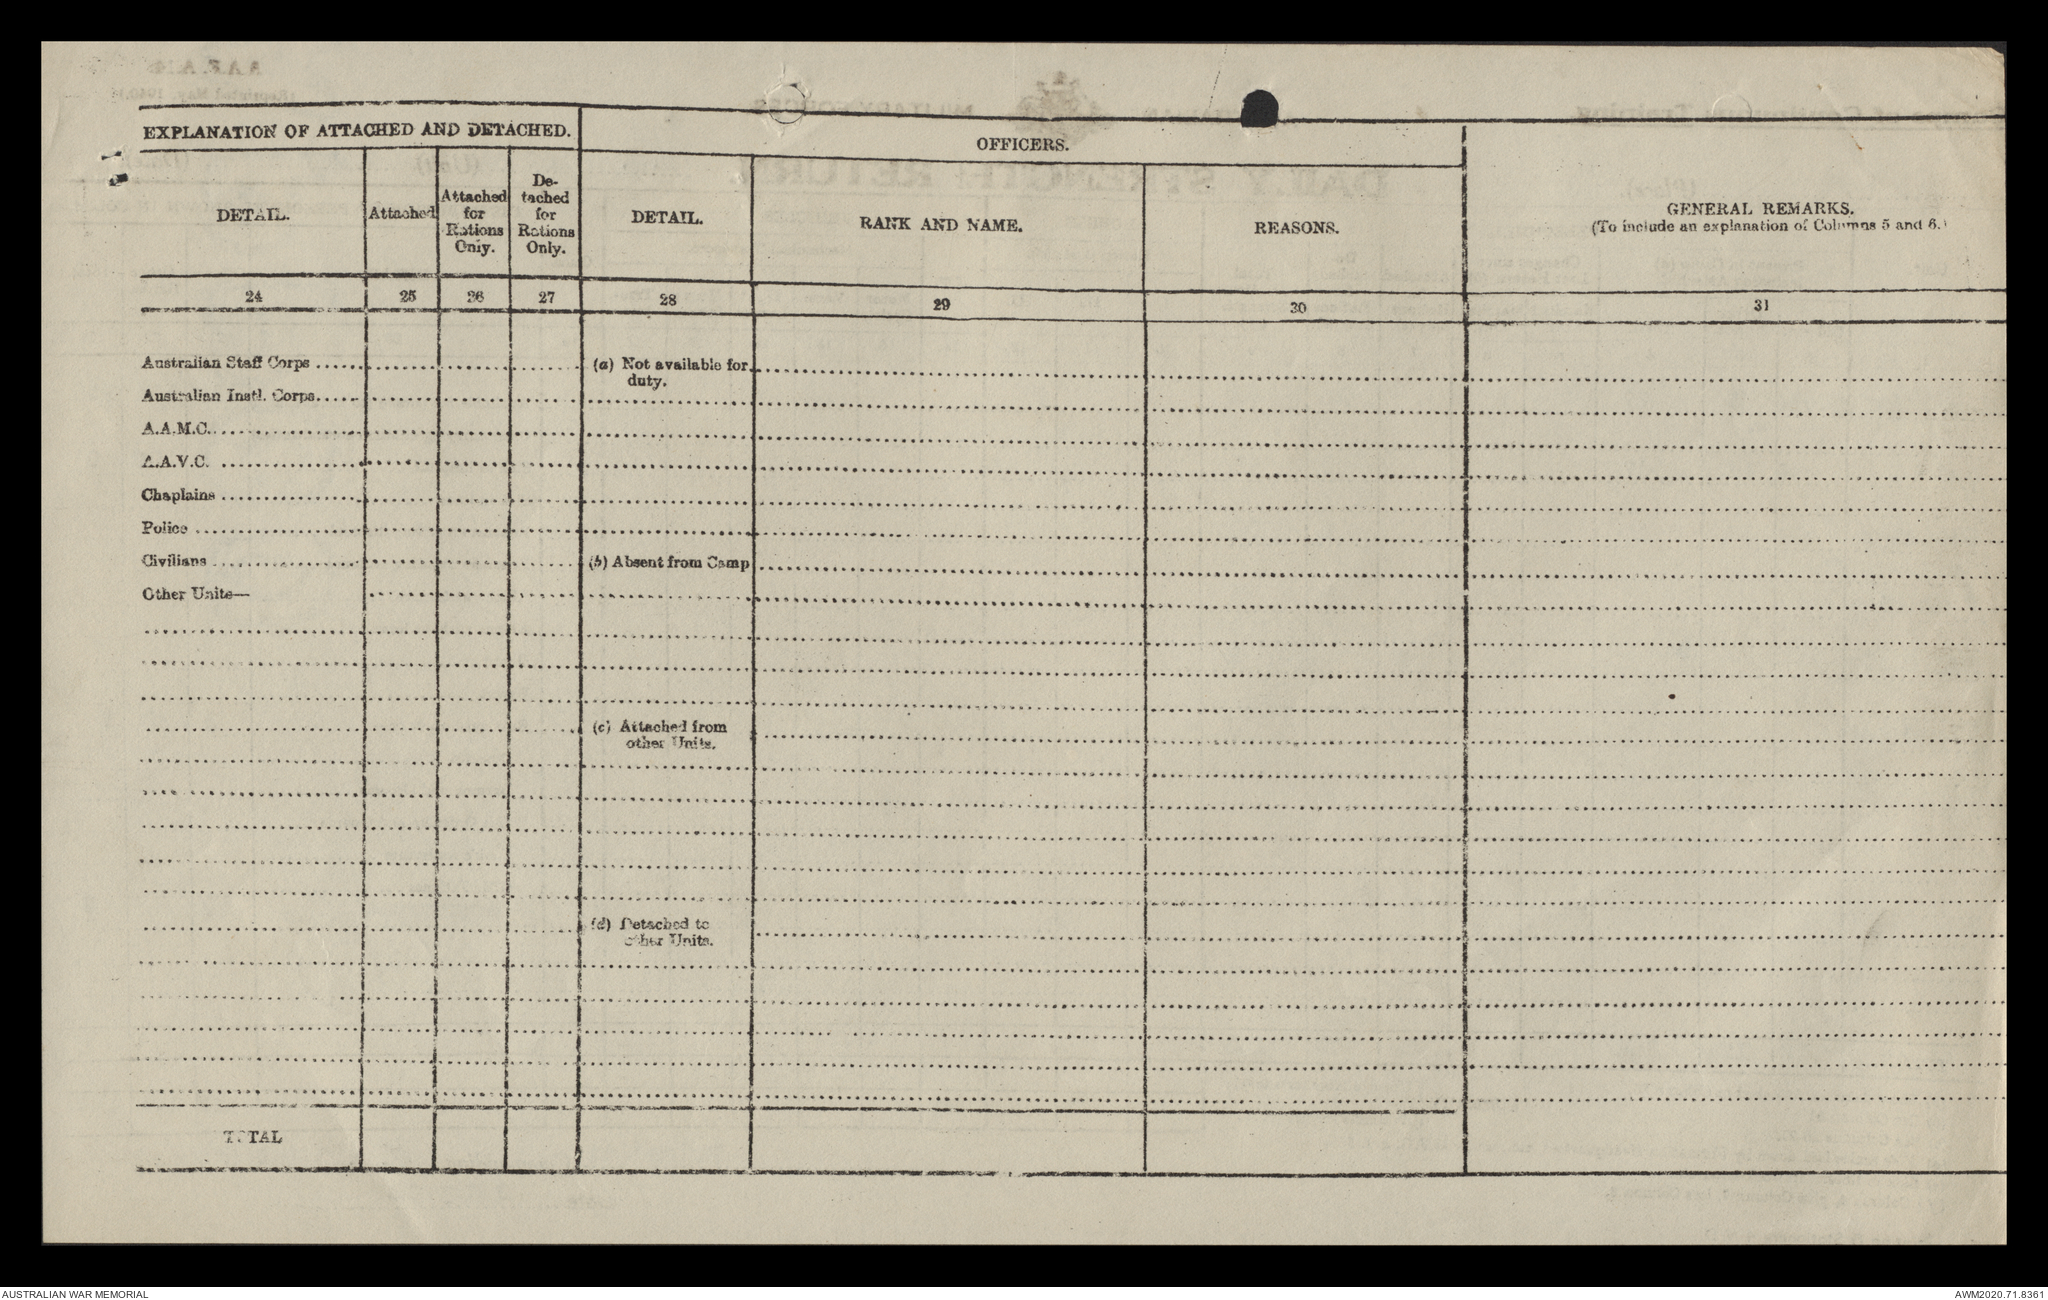 EXPLANATION OF ATTACHED AND DETACHED.
OFFICERS.
GENERAL REMARKS.
(To include an explanation of Columns 5 and 6.)
DETAIL.
Attached
Attached
for
Rations
Only.
De-
tached
for
Rations
Only.
DETAIL.
RANK AND NAME.
REASONS.
24 25 26 27 28 29 30 31
Australian Staff Corps
Australian Instl. Corps
A.A.M.C.
A.A.V.C.
Chaplains
Police
Civilians
Other Units—
(a) Not available for
duty.
(b) Absent from Camp
(c) Attached from
other Units.
(d) Detached to
other Units.
TOTAL
AUSTRALIAN WAR MEMORIAL
AWM2020.71.8361